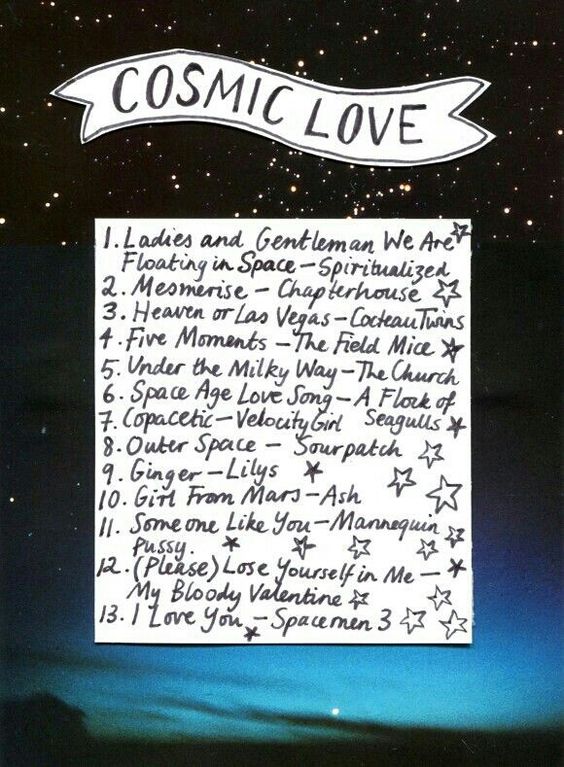 COSMIC LOVE
1. Ladies and Gentleman We Are
Floating in Space - Spiritualized
2. Mesmerise - Chapterhouse
3. Heaven or Las Vegas - Cocteau Twins
4. Five Moments - The Field Mice
5. Under the Milky Way - The Church
6. Space Age Love Song - A Flock of
7. Copacetic - Velocity Girl Seagulls
8. Outer Space - Sourpatch
9. Ginger - Lilys
10. Girl From Mars - Ash
11. Someone Like You - Mannequin
Pussy.
12. (Please) Lose Yourself in Me -
My Bloody Valentine
13. I Love You - Spacemen 3